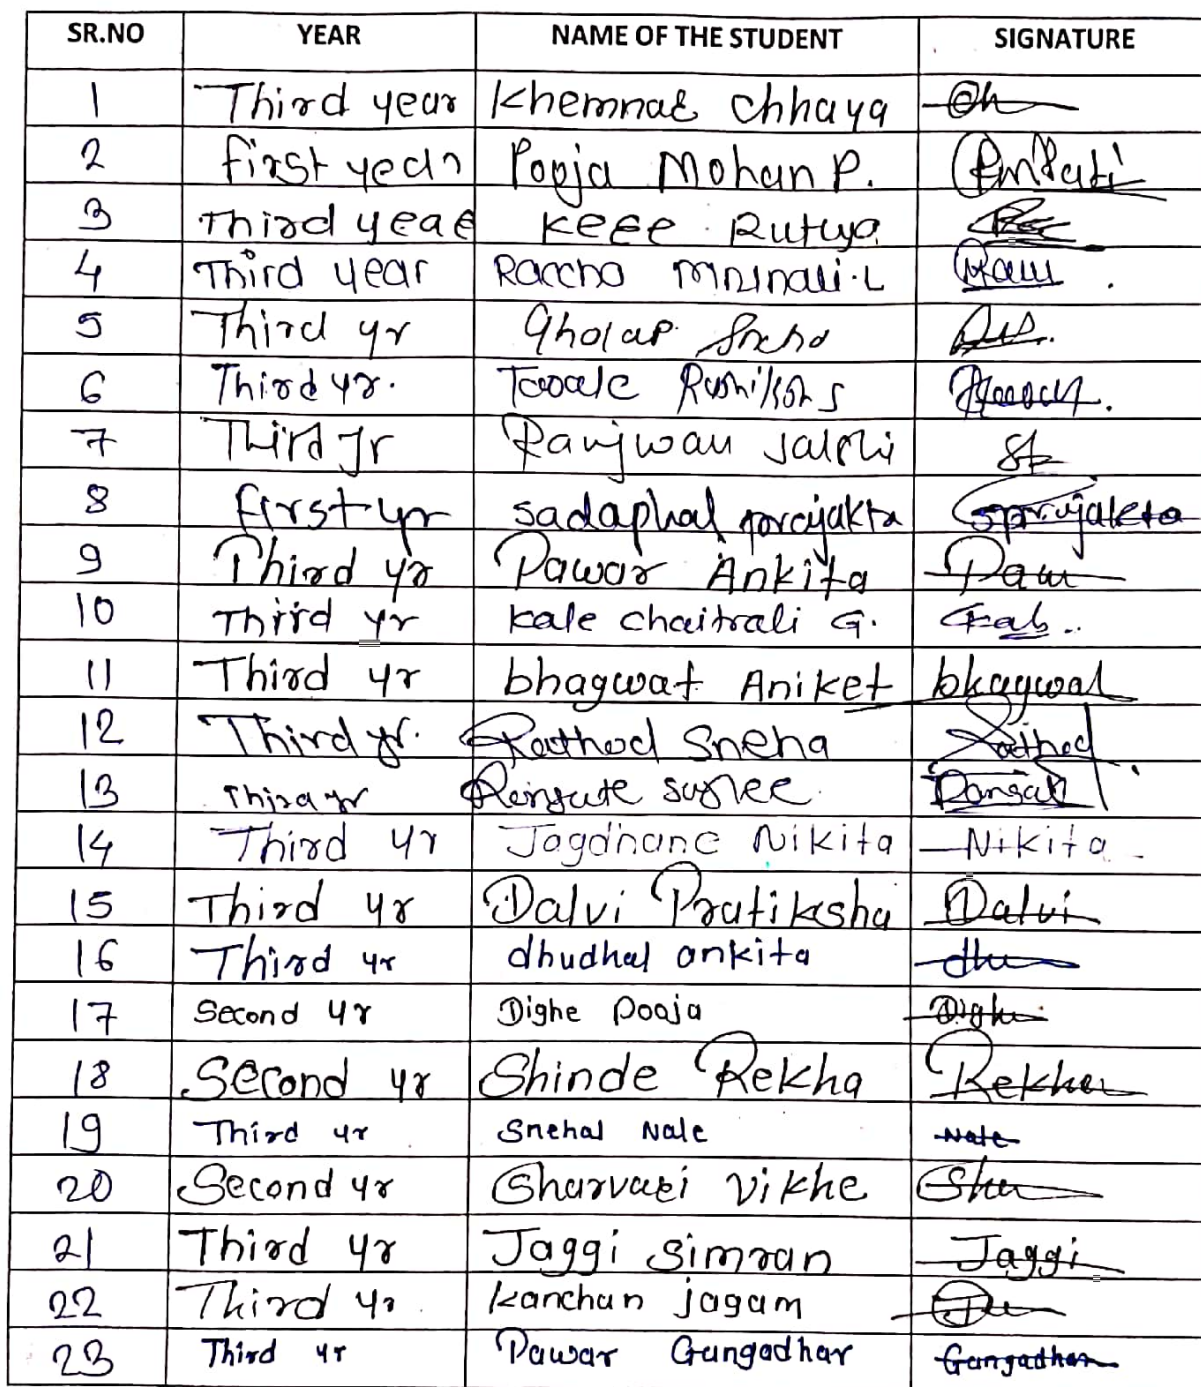 SR.NO YEAR NAME OF THE STUDENT SIGNATURE
1 Third year Khemnar Chhaya
2 first year Pooja Mohan P. PmPati
3 Third year Kere Rutuja
4 Third year Raccho Mrunali.L
5 Third yr Gholap Sneha
6 Third yr.
7 Third yr Ranjwan
8 first yr sadaphal prajakta Sprajakta
9 Third yr Pawar Ankita Paw
10 Third yr kale chaitrali G.
11 Third yr bhagwat Aniket bhagwat
12 Third yr. Rathod Sneha Rathod
13 Third yr
14 Third yr Jagdhane Nikita Nikita
15 Third yr Dalvi Pratiksha Dalvi
16 Third yr dhudhal ankita dhu
17 Second yr Dighe Pooja Dighe
18 Second yr Shinde Rekha Rekha
19 Third yr Snehal Nale Nale
20 Second yr Sharvari Vikhe Sha
21 Third yr Jaggi Simran Jaggi
22 Third yr Kanchan jagam
23 Third yr Pawar Gangadhar Gangadhar